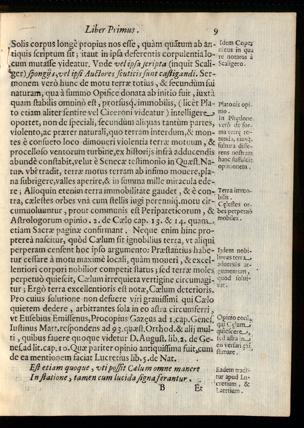 Liber Primus. 9
Solis corpus longè propius nos esse, quàm quātum ab an-
tiquis scriptum sit; itaut in ipsa deferentis corpulentia lo-
cum mutasse videatur. Vnde vel ipsa scripta (inquit Scali-
ger) spongijs, vel ipsi Auctores scuticis sunt castigandi. Ser-
monem verò hunc de motu terræ totius, & secundùm sui
naturam, quæ à summo Opifice donata ab initio fuit, iuxtà
quam stabilis omninò est, prorsusq; immobilis, (licèt Pla-
to etiam aliter sentire vel Ciceroni videatur) intelligere
oportet, non de speciali, secundum aliquas tantùm partes,
violento, ac præter naturali, quo terram interdum, & mon-
tes è consueto loco dimoueri violentia terræ motuum, &
procelloso ventorum turbine, ex historijs infrà adducendis
abundè constabit, velut è Senecæ testimonio in Quæst. Na-
tur. vbi tradit, terræ motus terram ab infimo mouere, pla-
na subrigere, valles aperire, & in summa mille miracula ede-
re; Alioquin etenim terra immobilitate gaudet, & è con-
tra, cælestes orbes vnà cum stellis iugi perenniq. motu cir-
cumuoluuntur, prout commenis est Peripateticorum, &
Astrologorum opinio. 2. de Cælo cap. 13. & 14. quam
etiam Sacræ paginæ confirmant. Neque enim hinc pro-
ptereà nascitur, quòd Cælum sit ignobilius terra, vt aliqui
perperam censent hoc ipso argumento: Præstantius habe-
tur cessare à motu maximè locali, quàm moueri, & excel-
lentiori corpori nobilior competit status; sed terræ moles
perpetuò quiescit, Cælum irrequieta vertigine circumagi-
tur; Ergò terra excellentioris est notæ, Cælum deterioris.
Pro cuius solutione non defuere viri grauissimi qui Cælo
quietem dedere, arbitrantes sola in eo astra circumferri;
vt Eusebius Emissenus, Procopius Gazæus ad 1. cap. Genes.
Iustinus Mart. respondens ad 93. quæst. Orthod. & alij mul-
ti, quibus fauere quoque videtur D. August. lib. 2. de Ge-
nes. ad lit. cap. 10. Quæ pariter opinio antiquissima fuit, cum
de ea mentionem faciat Lucretius lib. 5. de Nat.
Est etiam quoque, vti possit Cælum omne manere
In statione, tamen cum lucida signa ferantur.
B Et
Idem Coper
nicus in qua
re notatus à
Scaligero.
Platonis opi-
nio.
Terra immo-
bilis.
Cælestes or-
bes perpetuò
mobiles.
argumentum,
quod solui-
tur.
Opinio eorū,
qui Cælum
quiescere,
sed astra in
eo versari exi-
stimare.
Eadem tradi-
tur apud Lu-
cretium.